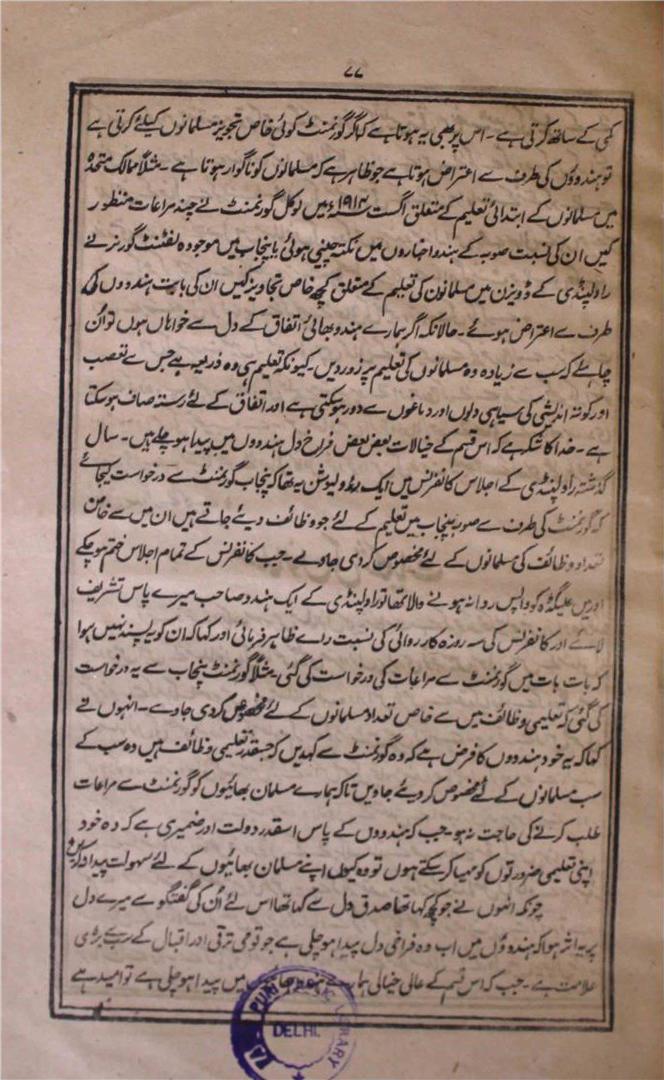 ۷۷
کمی کے ساتھ کرتی ہے۔ اس پر بھی یہ ہوتا ہے کہ اگر گورنمنٹ کوئی خاص تجویز مسلمانوں کیلئے کرتی ہے
تو ہندوؤں کی طرف سے اعتراض ہوتا ہے جو ظاہر ہے کہ مسلمانوں کو ناگوار ہوتا ہے۔ مثلاً ممالک متحدہ
میں مسلمانوں کے ابتدائی تعلیم کے متعلق اگست ۱۹۱۴ء میں لوکل گورنمنٹ نے چند مراعات منظور
کیں ان کی نسبت صوبہ کے ہندو اخباروں میں نکتہ چینی ہوئی یا پنجاب میں موجودہ لفٹنٹ گورنر نے
راولپنڈی کے ڈویزن میں مسلمانوں کی تعلیم کے متعلق کچھ خاص تجاویز کیں ان کی بابت ہندووں کی
طرف سے اعتراض ہوئے۔ حالانکہ اگر ہمارے ہندو بھائی اتفاق کے دل سے خواہاں ہوں تو اُن
چاہئے کہ سب سے زیادہ وہ مسلمانوں کی تعلیم پر زور دیں۔ کیونکہ تعلیم ہی وہ ذریعہ ہے جس سے تعصب
اور کوتہ اندیشی کی سیاہی دلوں اور دماغوں سے دور ہو سکتی ہے اور اتفاق کے لئے رستہ صاف ہو سکتا
ہے۔ خدا کا شکر ہے کہ اس قسم کے خیالات بعض بعض فراخ دل ہندووں میں پیدا ہو چلے ہیں۔ سال
گذشتہ راولپنڈی کے اجلاس کانفرنس میں ایک رزولیوشن یہ تھا کہ پنجاب گورنمنٹ سے درخواست کیجائے
کہ گورنمنٹ کی طرف سے صوبہ پنجاب میں تعلیم کے لئے جو وظائف دیئے جاتے ہیں ان میں سے خاص
تعداد وظائف کی مسلمانوں کے لئے مخصوص کر دی جاوے۔ جب کانفرنس کے تمام اجلاس ختم ہو چکے
اور میں علیگڑہ کو واپس روانہ ہونے والا تھا تو راولپنڈی کے ایک ہندو صاحب میرے پاس تشریف
لائے اور کانفرنس کی سہ روزہ کارروائی کی نسبت رائے ظاہر فرمائی اور کہا کہ ان کو یہ پسند نہیں ہوا
کہ بات بات میں گورنمنٹ سے مراعات کی درخواست کی گئی مثلاً گورنمنٹ پنجاب سے یہ درخواست
کی گئی کہ تعلیمی وظائف میں سے خاص تعداد مسلمانوں کے لئے مخصوص کر دی جاوے۔ انہوں نے
کہا کہ یہ خود ہندووں کا فرض ہے کہ وہ گورنمنٹ سے کہدیں کہ جسقدر تعلیمی وظائف ہیں وہ سب کے
سب مسلمانوں کے لئے مخصوص کر دیئے جاویں تاکہ ہمارے مسلمان بھائیوں کو گورنمنٹ سے مراعات
طلب کرنے کی حاجت نہ ہو۔ جب کہ ہندووں کے پاس اسقدر دولت اور ضمیری ہے کہ وہ خود
اپنی تعلیمی ضرورتوں کو مہیا کر سکتے ہوں تو وہ کیوں اپنے مسلمان بھائیوں کے لئے سہولت پیدا نہ کریں
چونکہ انھوں نے جو کچھ کہا تھا صدق دل سے کہا تھا اس لئے اُن کی گفتگو سے میرے دل
پر یہ اثر ہوا کہ ہندوؤں میں اب وہ فراخی دل پیدا ہو چلی ہے جو قومی ترقی اور اقبال کے بڑی
علامت ہے۔ جب کہ اس قسم کے عالی خیالی ہمارے میں پیدا ہو چلی ہے تو امید ہے
LIBRARY
DELHI.